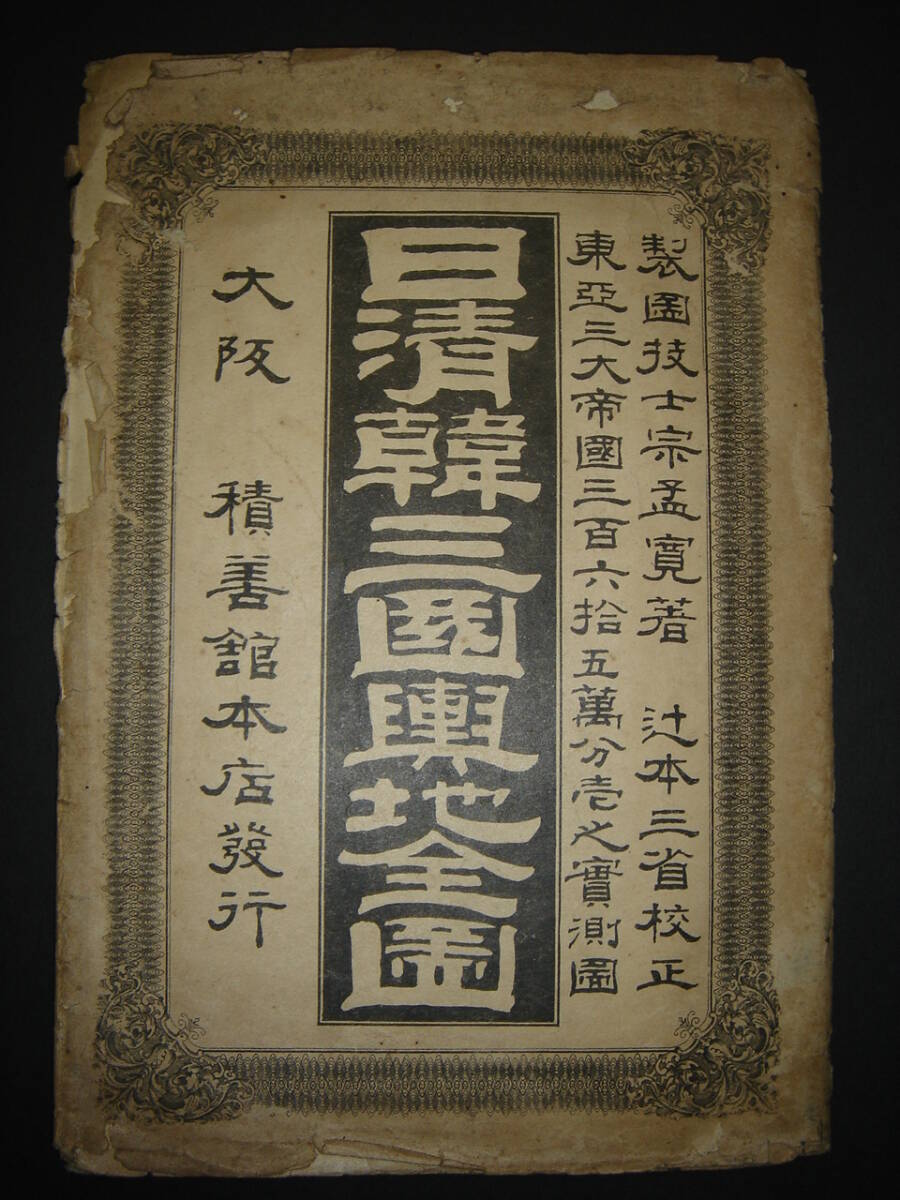 製圖技士宗孟寬著 辻本三省校正
東亞三大帝國三百六拾五萬分壱之實測圖
日清韓三國輿地全圖
大阪 積善館本店發行